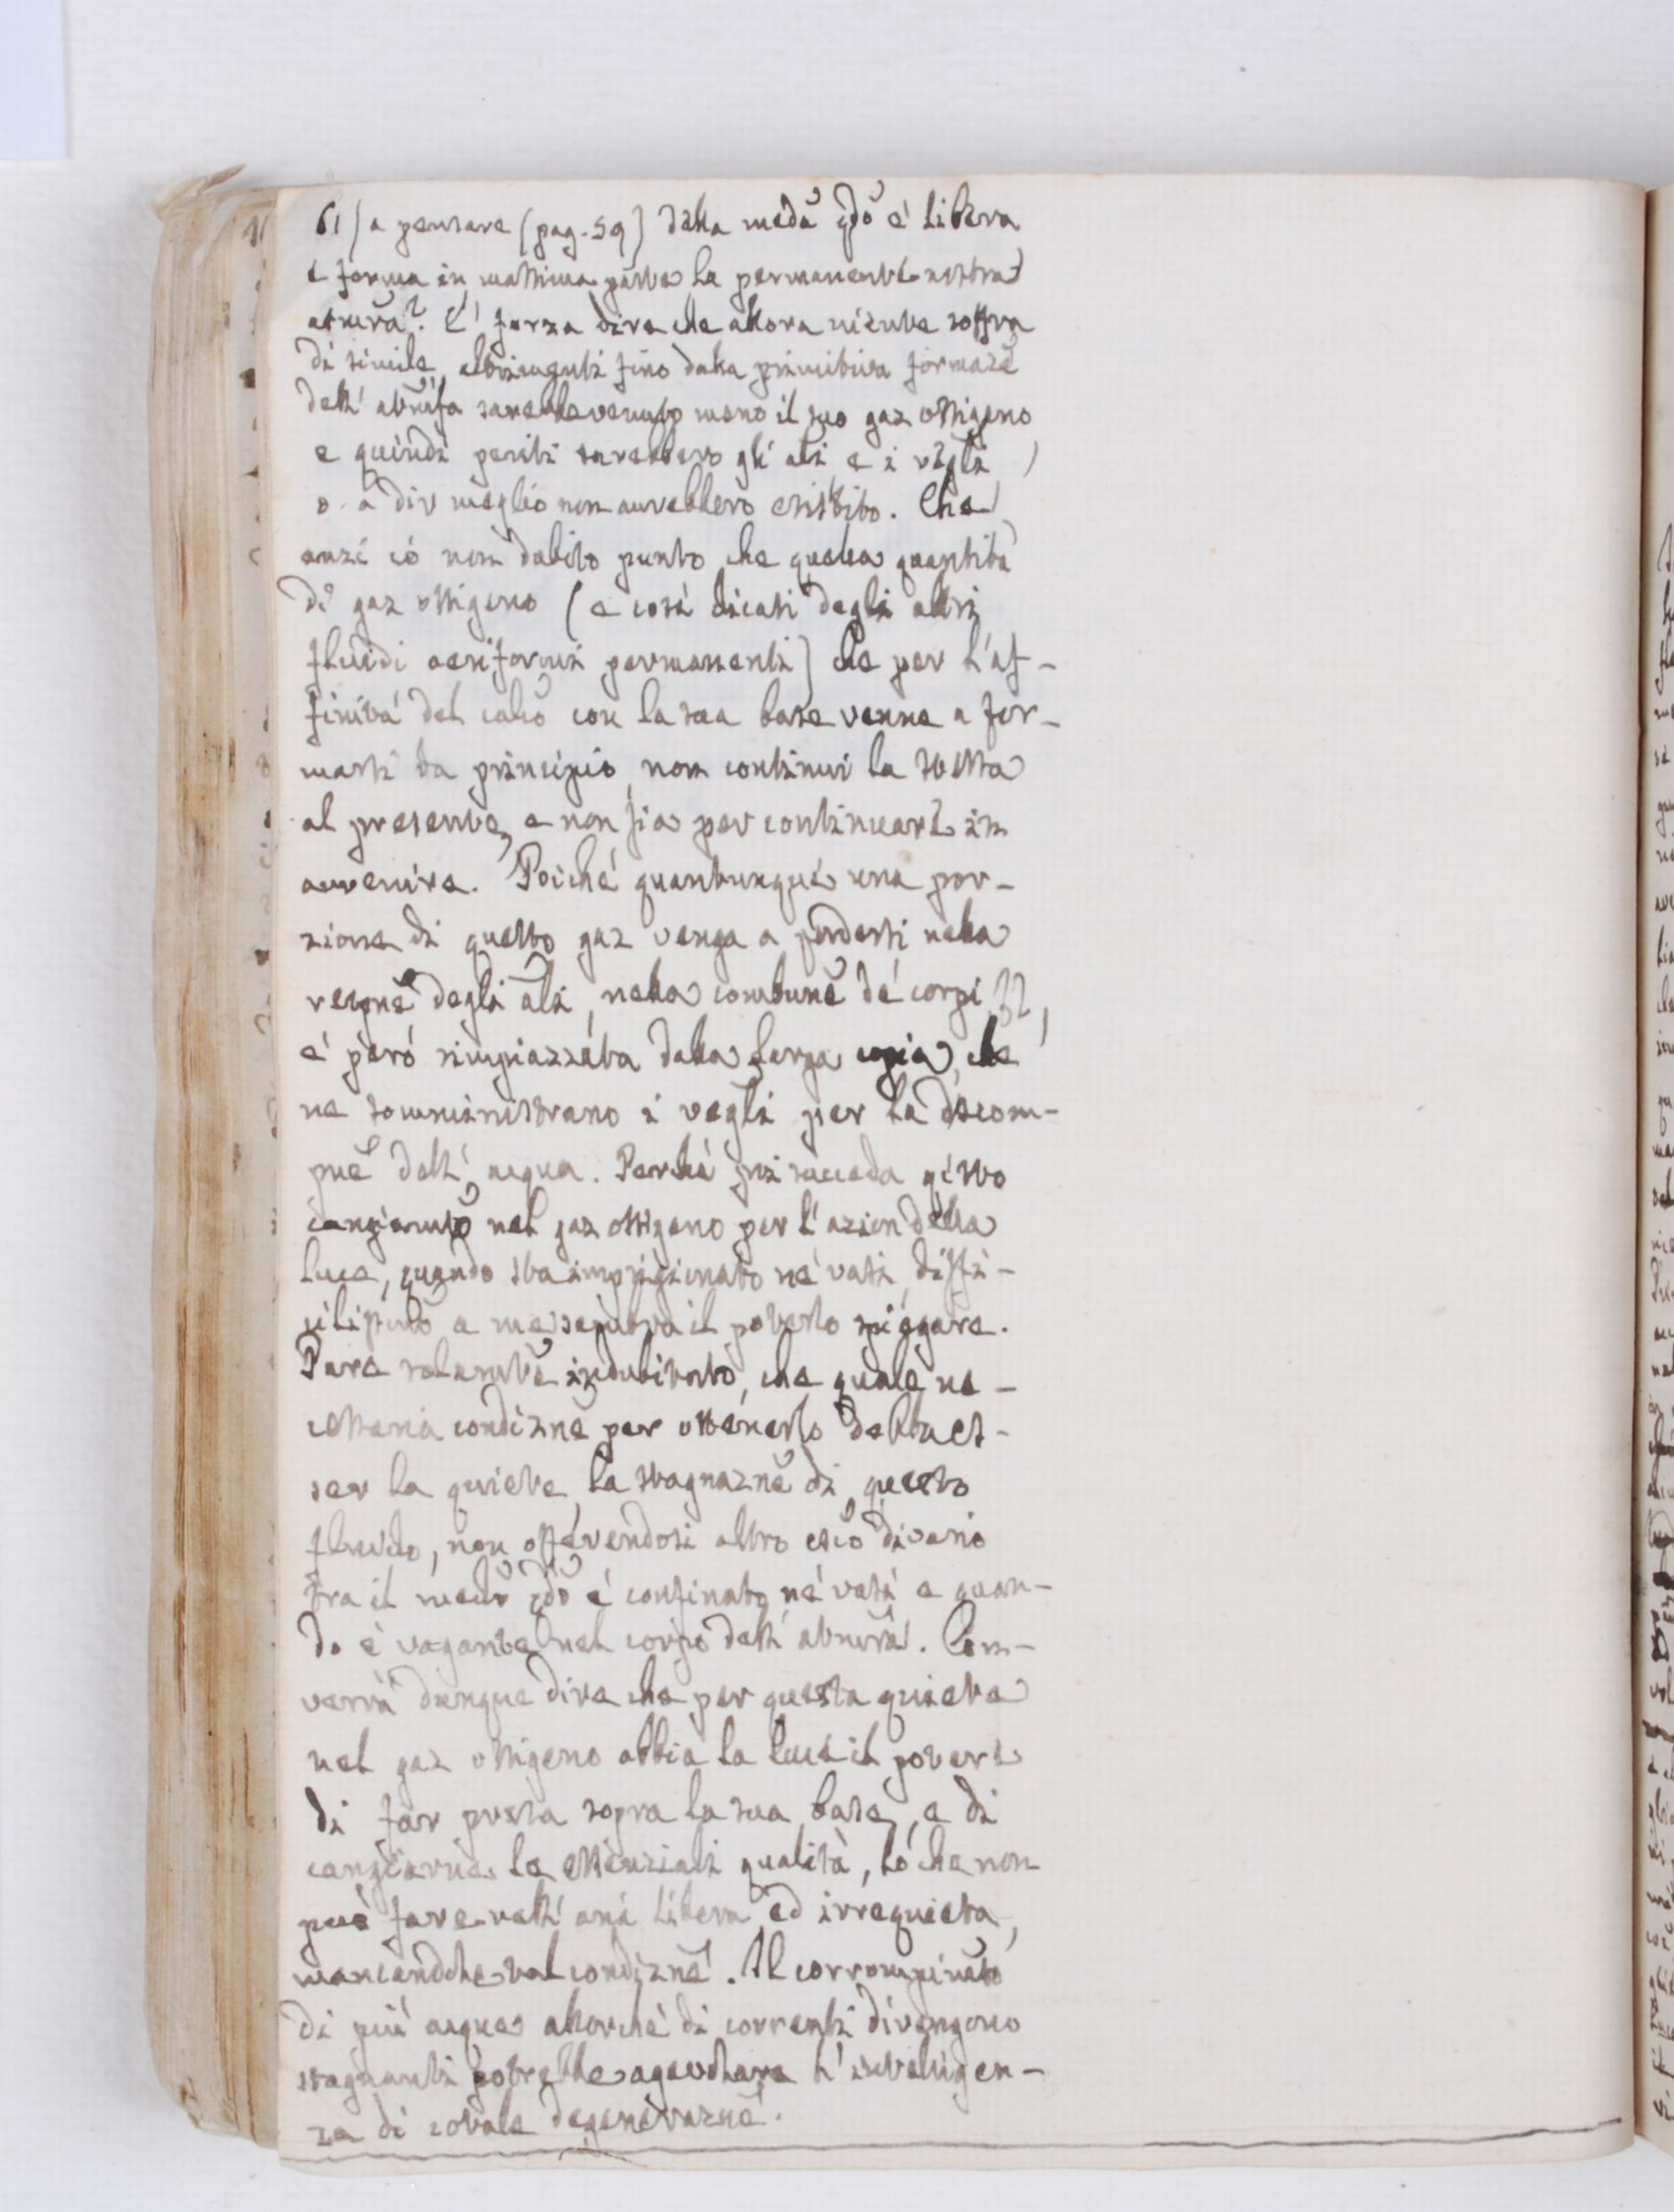 61) a pensare (pag. 59) dalla medã qdõ é libera
e forma in massima parte la permanente nostra
atmrã? E' forza dire che allora niente soffra
di simile, altrimenti fino dalla primitiva formazẽ
dell' atmrã sarebbe venuto meno il suo gaz ossigeno
e quindi periti sarebbero gli ali e i vegli,
o a dir meglio non avrebbero esistito. Che
anzi io non dubito punto che quella quantità
di gaz ossigeno (e così dicasi degli altri
fluidi aeriformi permanenti) che per l'af-
finità del calcõ con la sua base venne a for-
marsi da principio, non continui la stessa
al presente, e non sia per continuare in
avvenire. Poiché quantunque una por-
zione di questo gaz venga a perdersi nella
respne degli ali, nella combune de' corpi,
é peró rimpiazzata dalla larga copia, che
ne somministrano i vegli per la discom-
pne dell' acqua. Perché poi succeda qisto
cangiamto nel gaz ossigeno per l'azion della
luce, quando sta imprigionato ne' vasi, diffi-
cilissimo a me sembra il poterlo spiegare.
Pure solamte indubitato, che quale ne-
cessaria condizne per ottenerlo debba es-
ser la quiete, la stagnazne di questo
fluido, non osservendosi altro divario
tra il medmo qdo é confinato ne' vasi e quan-
do é vagante nel corpo dell' atmrã. Con-
verrà dunque dire che per questa quiete
nel gaz ossigeno abbia la luce il potere
di far presa sopra la sua base, e di
cangiarne le essenziali qualità, ló che non
può fare nell' aria libera ed irrequieta,
mancandole tal condizne. Il corrompimto
di più acque allorché di correnti divengono
stagnanti potrebbe agevolare l' intelligen-
za di cotale degenerazne.